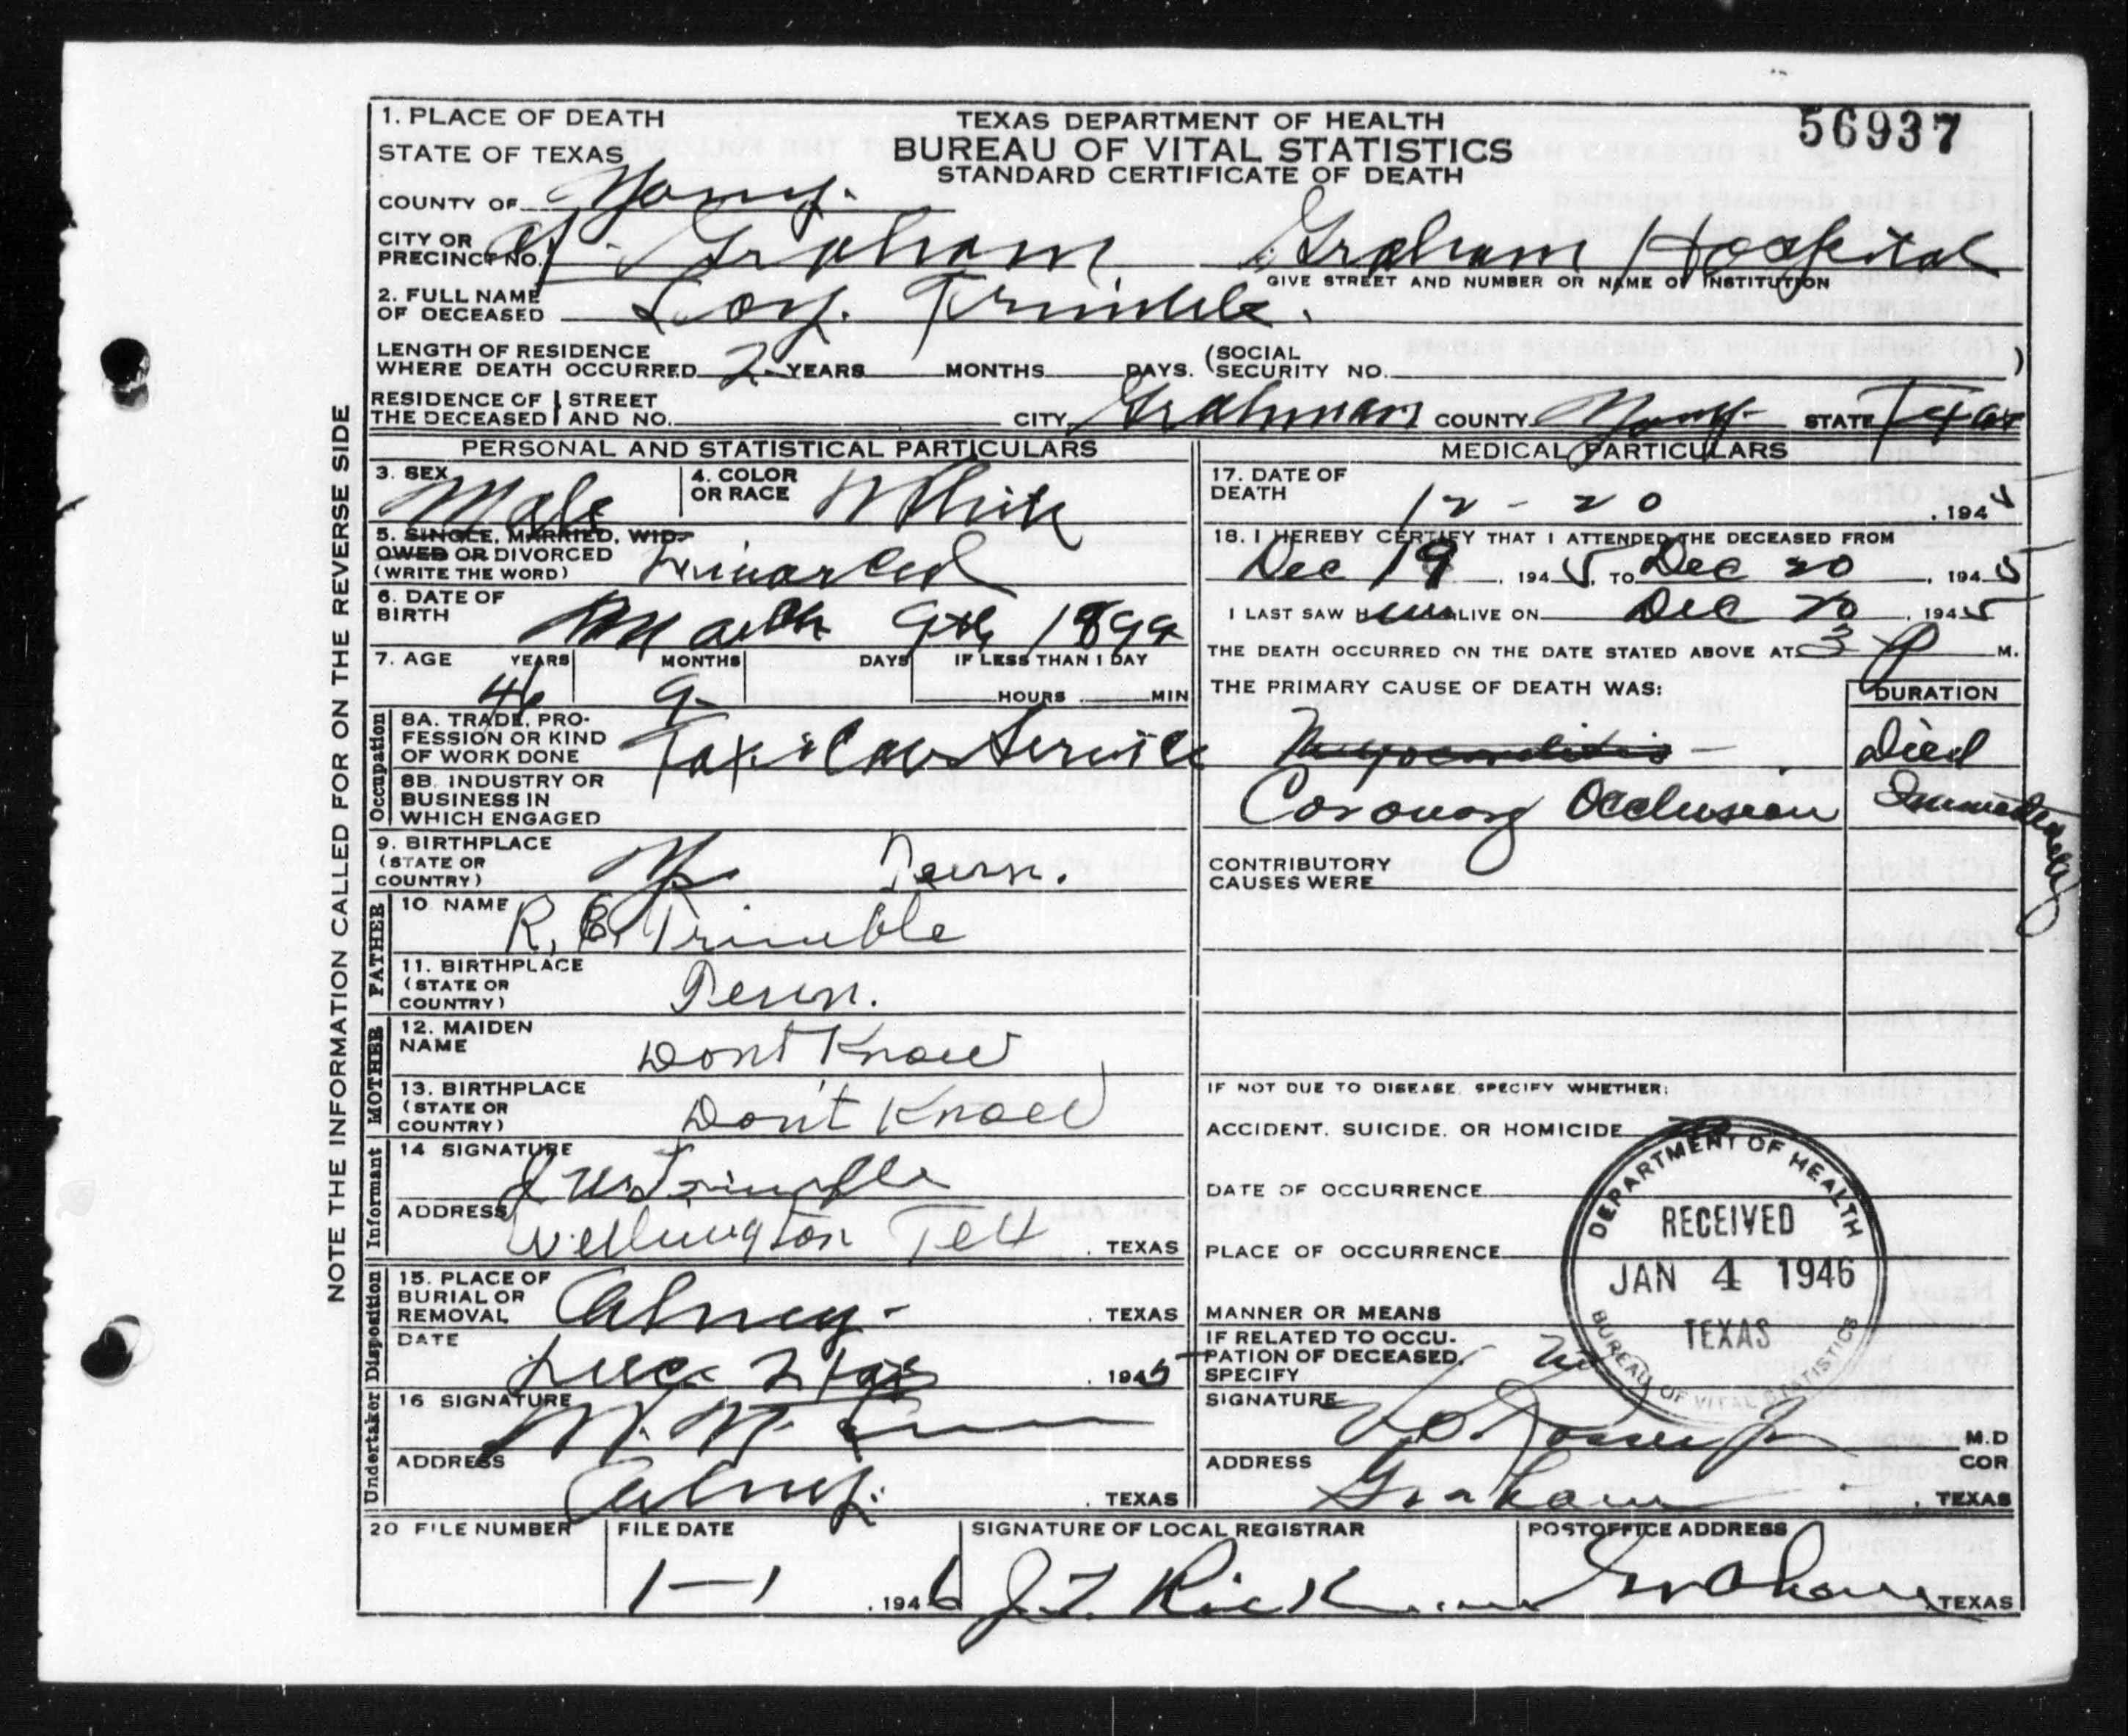 1. PLACE OF DEATH
STATE OF TEXAS
TEXAS DEPARTMENT OF HEALTH
BUREAU OF VITAL STATISTICS
STANDARD CERTIFICATE OF DEATH
56937
COUNTY OF Young.
CITY OR PRECINCT NO. Graham Graham Hospital
GIVE STREET AND NUMBER OR NAME OF INSTITUTION
2. FULL NAME OF DECEASED Loy. Trimble.
LENGTH OF RESIDENCE WHERE DEATH OCCURRED 2 YEARS MONTHS DAYS. (SOCIAL SECURITY NO. )
RESIDENCE OF THE DECEASED STREET AND NO. CITY Graham COUNTY Young STATE Texas
NOTE THE INFORMATION CALLED FOR ON THE REVERSE SIDE
PERSONAL AND STATISTICAL PARTICULARS
3. SEX Male
4. COLOR OR RACE White
5. SINGLE, MARRIED, WIDOWED OR DIVORCED
(WRITE THE WORD)
6. DATE OF BIRTH March 9th 1899
7. AGE YEARS MONTHS DAYS IF LESS THAN 1 DAY
46 9 HOURS MIN
Occupation
8A. TRADE, PROFESSION OR KIND OF WORK DONE Service
8B. INDUSTRY OR BUSINESS IN WHICH ENGAGED
9. BIRTHPLACE (STATE OR COUNTRY) Tenn.
FATHER
10 NAME R. E. Trimble
11. BIRTHPLACE (STATE OR COUNTRY) Tenn.
MOTHER
12. MAIDEN NAME Dont Know
13. BIRTHPLACE (STATE OR COUNTRY) Don't Know
Informant
14 SIGNATURE Trimble
ADDRESS Wellington Tex . TEXAS
Undertaker Disposition
15. PLACE OF BURIAL OR REMOVAL Olney . TEXAS
DATE Dec. 1945
16 SIGNATURE
ADDRESS Olney. . TEXAS
MEDICAL PARTICULARS
17. DATE OF DEATH 12 - 20 , 1945
18. I HEREBY CERTIFY THAT I ATTENDED THE DECEASED FROM
Dec 19 , 1945, TO Dec 20 , 1945
I LAST SAW HIM ALIVE ON Dec 20 , 1945
THE DEATH OCCURRED ON THE DATE STATED ABOVE AT 3 P M.
THE PRIMARY CAUSE OF DEATH WAS: DURATION
Myocarditis - Died
Coronary Occlusion Immediately
CONTRIBUTORY CAUSES WERE
IF NOT DUE TO DISEASE, SPECIFY WHETHER:
ACCIDENT, SUICIDE, OR HOMICIDE
DATE OF OCCURRENCE
PLACE OF OCCURRENCE
MANNER OR MEANS
IF RELATED TO OCCUPATION OF DECEASED, SPECIFY no
DEPARTMENT OF HEALTH
RECEIVED
JAN 4 1946
TEXAS
BUREAU OF VITAL STATISTICS
SIGNATURE M.D
ADDRESS Graham COR
. TEXAS
20 FILE NUMBER
FILE DATE 1-1 , 1946
SIGNATURE OF LOCAL REGISTRAR
POSTOFFICE ADDRESS Graham TEXAS